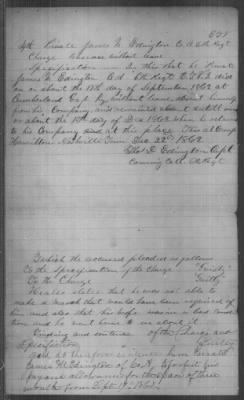 4th Private James N. Edington Co A 6th Regt
Charge Absence without leave
Specification In this that he Private
James N Edington Co A 6th Regt E.T.V.I. did
on or about the 17th day of September 1862 at
Cumberland Gap Ky, without leave absent himself
from his Company and remained absent until on
or about the 15th day of Dec 1862 when he returned
to his Company and at this place. This at Camp
Hamilton Nashville Tenn Dec 22nd 1862
Edington Capt
Co A 6th Regt
To which the accused pleaded as follows
To the specification of the Charge Guilty
To the Charge Guilty
He also states that he was not able to
make a march that would have been required of
him and also that his wife was in a bad condi
tion and he went home to see about it
Finding and sentence of the Charge and
Specification Guilty
and do therefore sentence him Private
James N Edington of Co A, to forfeit his
pay and allowance for the space of three
months from Sept 17th 1862